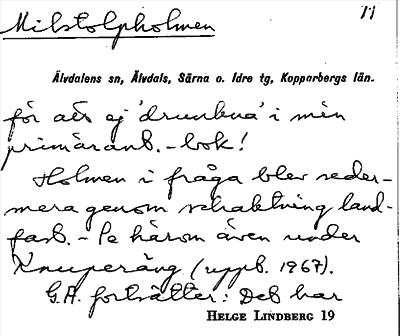 Milstolpholmen
11
Älvdalens sn, Älvdals, Särna o. Idre tg, Kopparbergs län.
för att ej 'drunkna' i min
primärant.-bok!
Holmen i fråga blev seder-
mera genom schaktning land-
fast. - Se härom även under
Knuperäng (uppt. 1967).
G.A. fortsätter: Det har
HELGE LINDBERG 19